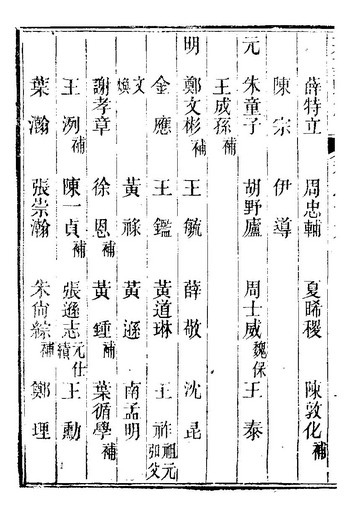 薛特立 周忠輔 夏晞稷 陳敦化補
陳宗 伊導
王成孫補
元 朱童子 胡野廬 周士威魏保 王泰
明 鄭文彬補 王毓 薛敬 沈昆
金應 王鑑 黃道琳 王祚祖元
文煥 黃祿 黃遜 南孟明
謝孝章 徐恩補 黃鍾補 葉循學補
王洌補 陳一貞補 張遜志元仕績 王勳
葉瀚 張崇瀚 朱尙綜補 鄭理